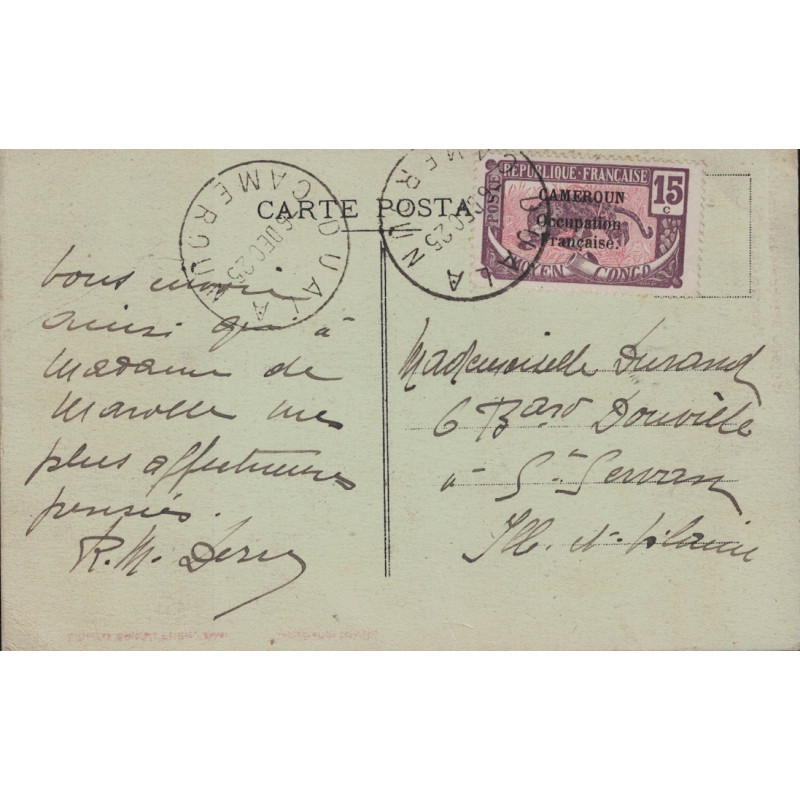 CARTE POSTA
DOUALA
6 DEC 25
CAMEROUN
DOUALA
6 DEC 25
CAMEROUN
POSTES
RÉPUBLIQUE FRANÇAISE
15
c
CAMEROUN
Occupation
Française.
MOYEN CONGO
ainsi qu'à
Madame de
Marolle mes
plus affectueuses
pensées.
R. M.
Mademoiselle Durand
6 Bard Douville
à St Servan
Ille et Vilaine